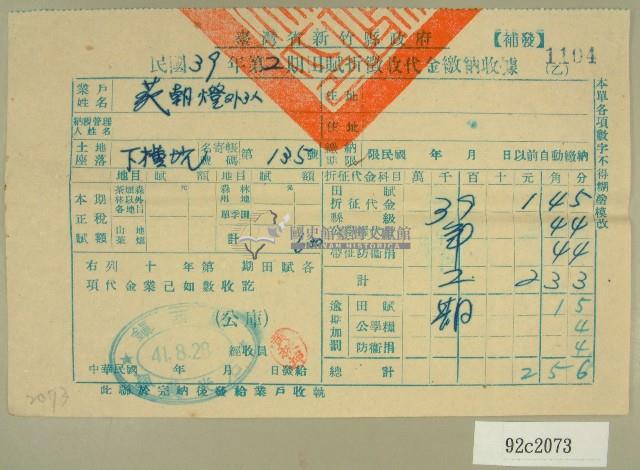 臺灣省新竹縣政府
【補發】
民國39年第2期田賦折徵收代金繳納收據
(乙)
1104
業戶姓名
朝燈外3人
住址
納稅管理人姓名
住址
土地座落
下橫坑
名寄帳號碼
第135號
繳納期限
限民國 年 月 日以前自動繳納
地目 賦額 地目 賦額
折征代金科目 萬 千 百 十 元 角 分
本期正稅賦額
元
元
山
單季田
計
田賦折征代金 1 4 5
39
縣級公學糧代金 4 4
第
帶征防衛捐 4 4
計 2 3 3
2
期
逾期加罰
田賦 1 5
公學糧 4
防衛捐 4
總計 2 5 6
右列十年第 期田賦各項代金業已如數收訖
(公庫)
經收員
41.8.28
中華民國 年 月 日發給
此聯於完納後發給業戶收執
本單各項數字不得糊塗模改
國史館臺灣文獻館
TAIWAN HISTORICA
2073
92c2073